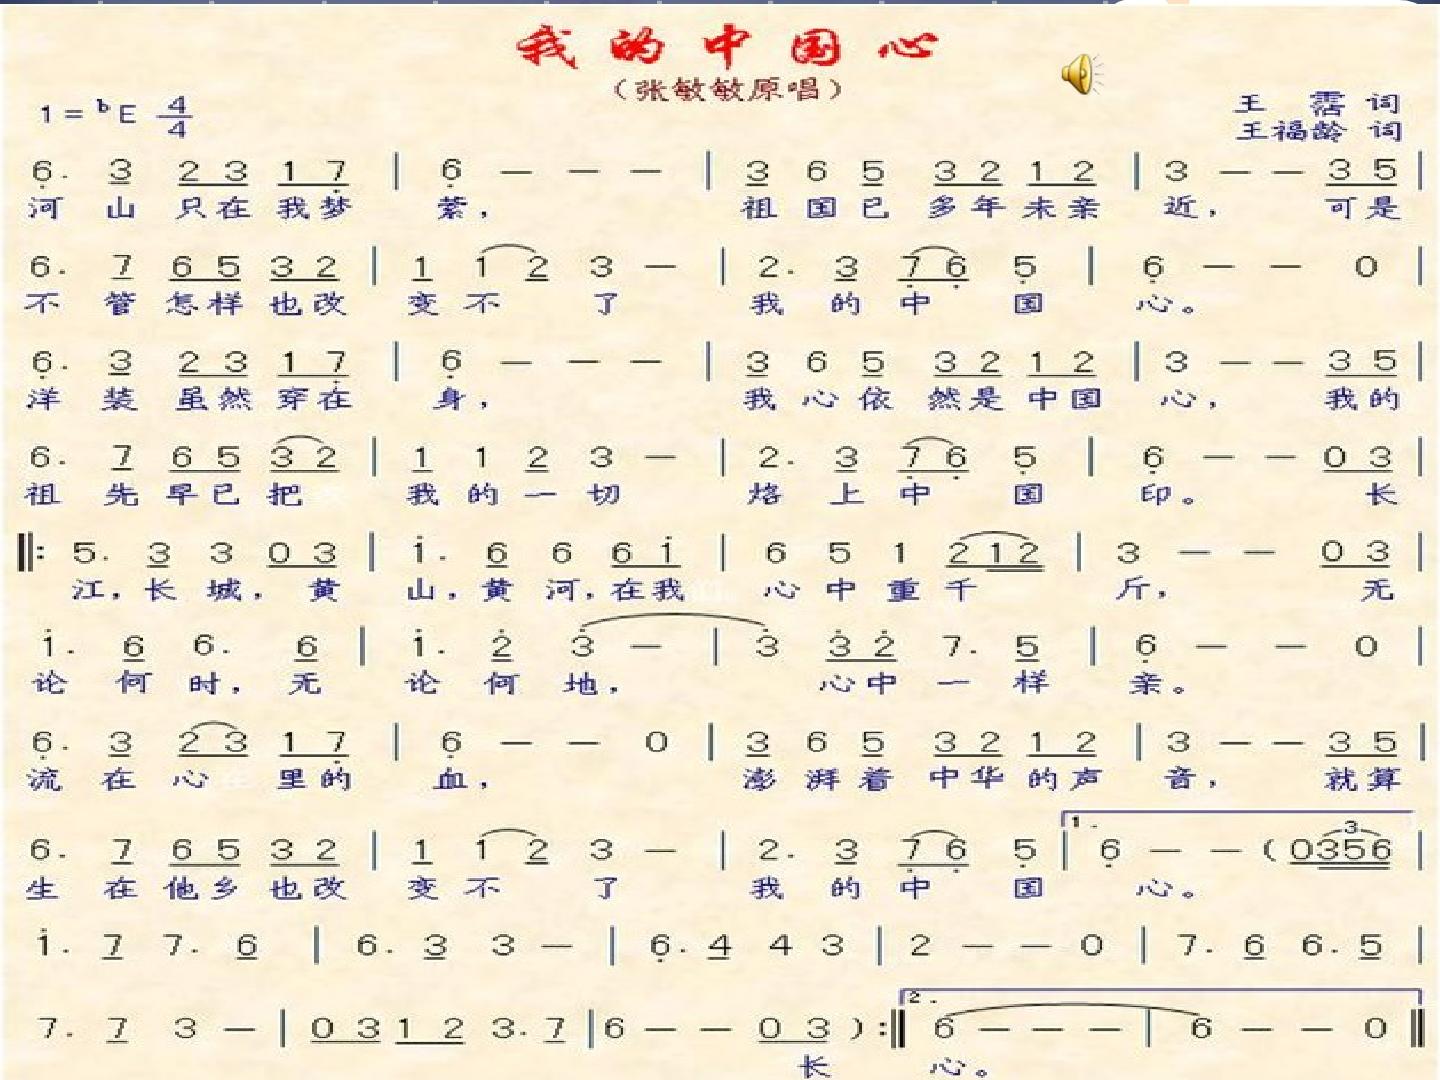 我的中国心
（张敏敏原唱）
1=ᵇE 4/4
王 霑 词
王福龄 词
6̣. 3 2 3 1 7̣ | 6̣ — — — | 3 6 5 3 2 1 2 | 3 — — 3 5 |
河 山 只在 我梦 萦， 祖 国 已 多年 未亲 近， 可是
6. 7 6 5 3 2 | 1 1 2 3 — | 2. 3 7̣ 6̣ 5̣ | 6̣ — — 0 |
不 管 怎样 也改 变 不 了 我 的 中 国 心。
6̣. 3 2 3 1 7̣ | 6̣ — — — | 3 6 5 3 2 1 2 | 3 — — 3 5 |
洋 装 虽然 穿在 身， 我 心 依 然是 中国 心， 我的
6. 7 6 5 3 2 | 1 1 2 3 — | 2. 3 7̣ 6̣ 5̣ | 6̣ — — 0 3 |
祖 先 早已 把 我 的 一 切 烙 上 中 国 印。 长
‖: 5. 3 3 0 3 | 1̇. 6 6 6 1̇ | 6 5 1 2 1 2 | 3 — — 0 3 |
江，长 城， 黄 山，黄 河，在我 心 中 重 千 斤， 无
1̇. 6 6. 6 | 1̇. 2̇ 3̇ — | 3̇ 3̇ 2̇ 7. 5 | 6 — — 0 |
论 何 时， 无 论 何 地， 心中 一 样 亲。
6̣. 3 2 3 1 7̣ | 6̣ — — 0 | 3 6 5 3 2 1 2 | 3 — — 3 5 |
流 在 心 里的 血， 澎 湃 着 中华 的声 音， 就算
6. 7 6 5 3 2 | 1 1 2 3 — | 2. 3 7̣ 6̣ 5̣ | 1. 6̣ — — （ 0356 |
生 在 他乡 也改 变 不 了 我 的 中 国 心。
1̇. 7 7. 6 | 6. 3 3 — | 6̣. 4 4 3 | 2 — — 0 | 7. 6 6. 5 |
7. 7 3 — | 0 3 1 2 3. 7 | 6 — — 0 3 ） :‖ 2. 6 — — — | 6 — — 0 ‖
长 心。